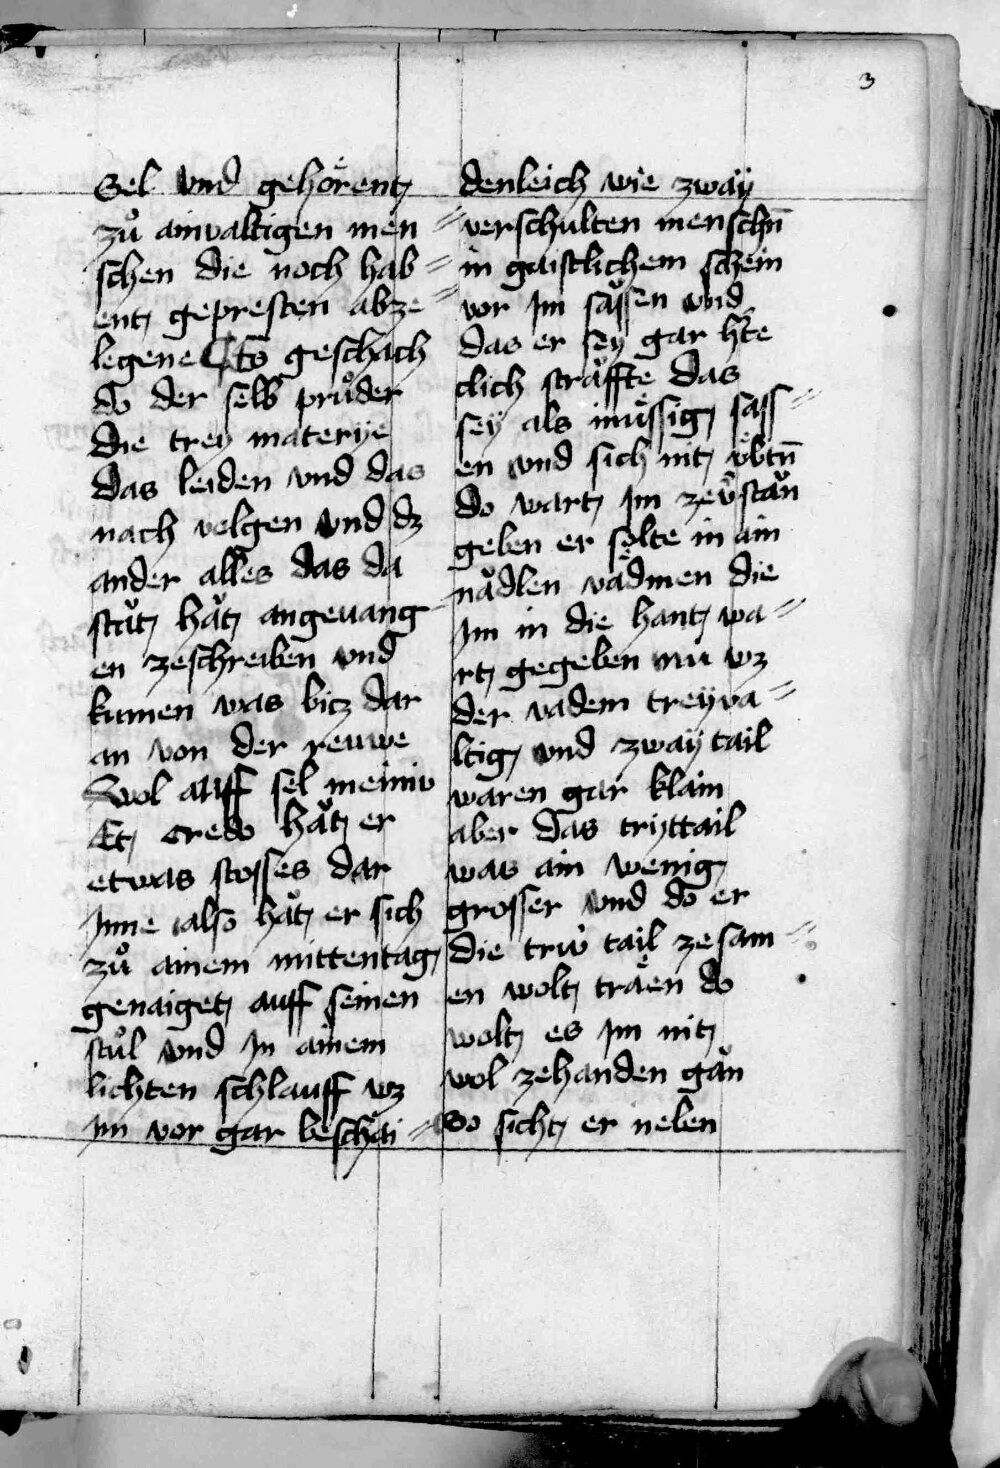 3
Sel vnd gehoͤrent
zuͦ ainualtigen men⸗
schen die noch hab⸗
ent gepresten abze⸗
legene Es geschach
do der selb pruͦder
die trey materye
das leiden vnd das
nach uelgen vnd dz
ander alles das da
staͧt haͧt angeuang
en zeschreiben vnd
kumen was bicz dar
an von der reuwe
Wol auff sel meiniv
Et credo haͧt er
etwas stosses dar
Inne also haͧt er sich
zuͦ ainem mittentag
genaiget auff seinen
stuͦl vnd In ainem
lichten schlauff wz
Im vor gar beschai⸗
denleich wie zwaÿ
verschulten menschn̄
in gaistlichem schein
vor Im saͧssen vnd
das er seÿ gar h̄te
clich sträffte das
seÿ als muͤssig sass⸗
en vnd sich nit vͤbtn̄
do wart Im zev̄staͧn
geben er soͤlte in ain
naͧdlen vädmen die
Im in die hant wa⸗
rt gegeben nu wz
der vadem treyua⸗
ltig vnd zwaÿ tail
waren gar klain
aber das tryttail
was ain wenig
grosser vnd do er
die triv tail zesam⸗
en wolt träen do
wolt es Im nit
wol zehanden gaͧn
So sicht er neben